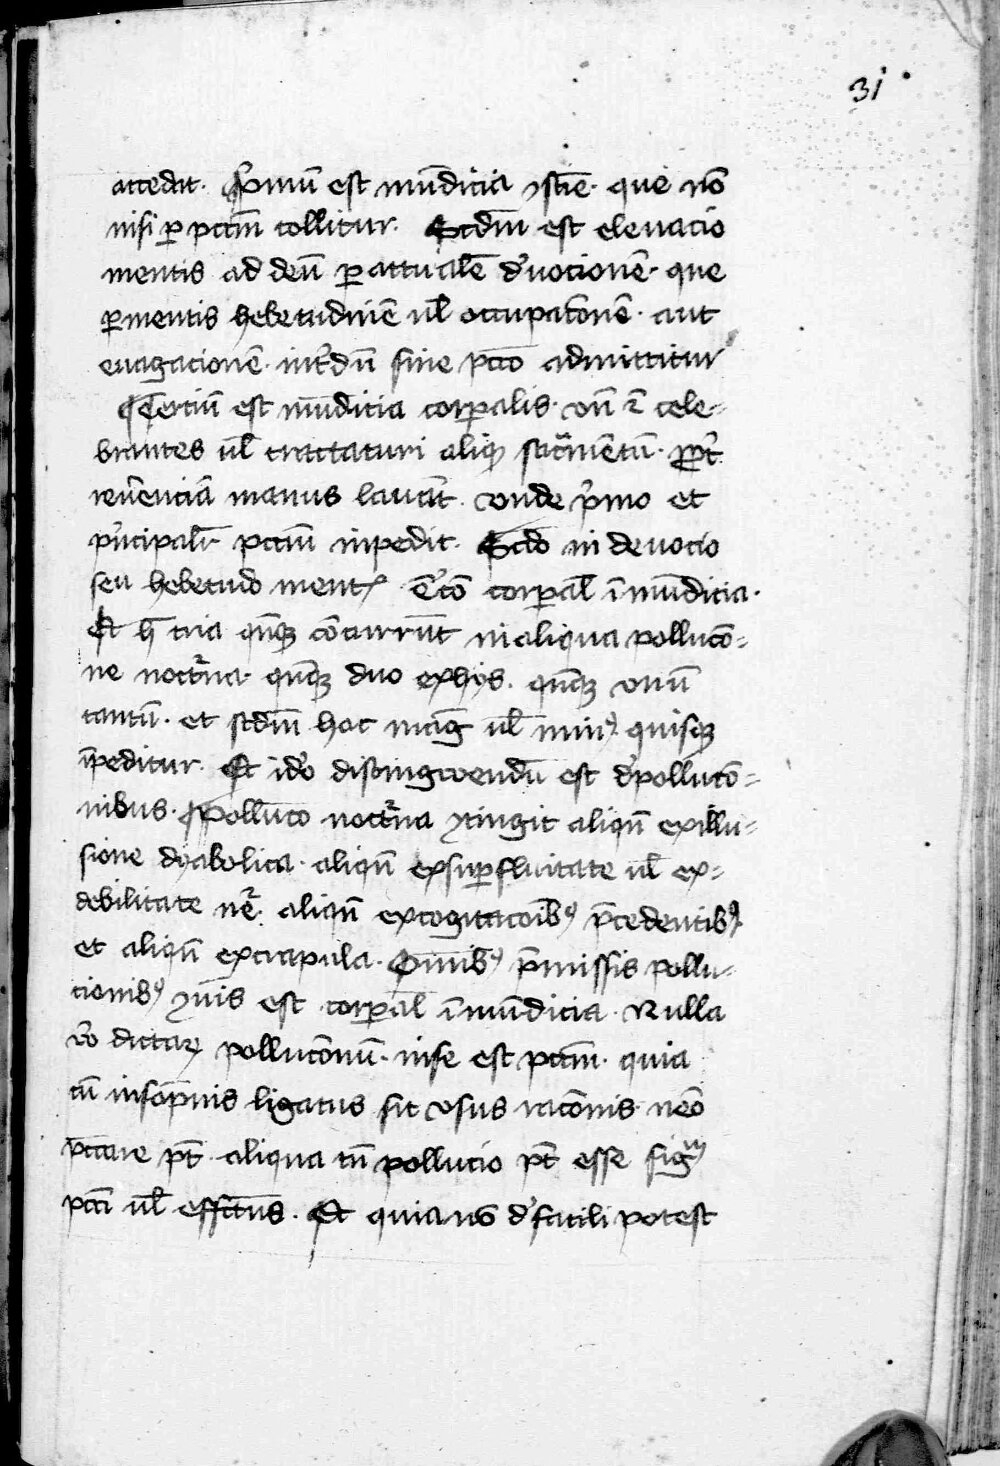 31
accedit. Pͥmū est mūdicia ꝯsciē. que nō
nisi ꝑ pctm̄ tollitur. Scdm̄ est eleuacio
mentis ad deū ꝑ actualē deuocionē. que
ꝑ mentis hebetudinē ul̄ occupacōnē. aut
euagacionē. int̄dū sine pcco admittitur
Terciū est mūdicia corꝑalis. vn̄ ⁊ cele-
brantes ul̄ tractaturi aliqͥ sacͣmētū. ꝓpt̄
reuēnciā manus lauāt. vnde pͥmo et
pͥncipalr̄ pctm̄ inpedit. Scdo indeuocio
seu hebetudo mentꝭ t̄cō corꝑal̄ īmūdicia.
Et h̄ tria qn̄qꝫ cōcurrūt in aliqua pollucō-
ne noctͣna. qn̄qꝫ duo ex hijs. qn̄qꝫ vnū
tantū. et scdm̄ hoc maḡ ul̄ minꝰ quisqꝫ
īpeditur. Et ideo distingwendū est de pollucō-
nibus. Pollucō noctͣna ꝯtingit aliqn̄ ex illu-
sione dyabolica. aliqn̄ ex suꝑfluitate ul̄ ex-
debilitate nē. aliqn̄ ex cogitacōibꝰ p̄cedentibꝰ
et aliqn̄ ex crapula. Om̄ibꝰ p̄missis pollu-
cionibꝰ ꝯm̄is est corꝑal̄ īmūdicia. Nulla
v̄o dictaꝝ pollucōnū. in se est pctm̄. quia
cū in sōpnis ligatus sit vsus racōnis. nēo
pccare pt̄. aliqua tn̄ pollucio pt̄ esse sigᵐ
pcci ul̄ effctus. Et quia nō de facili potest